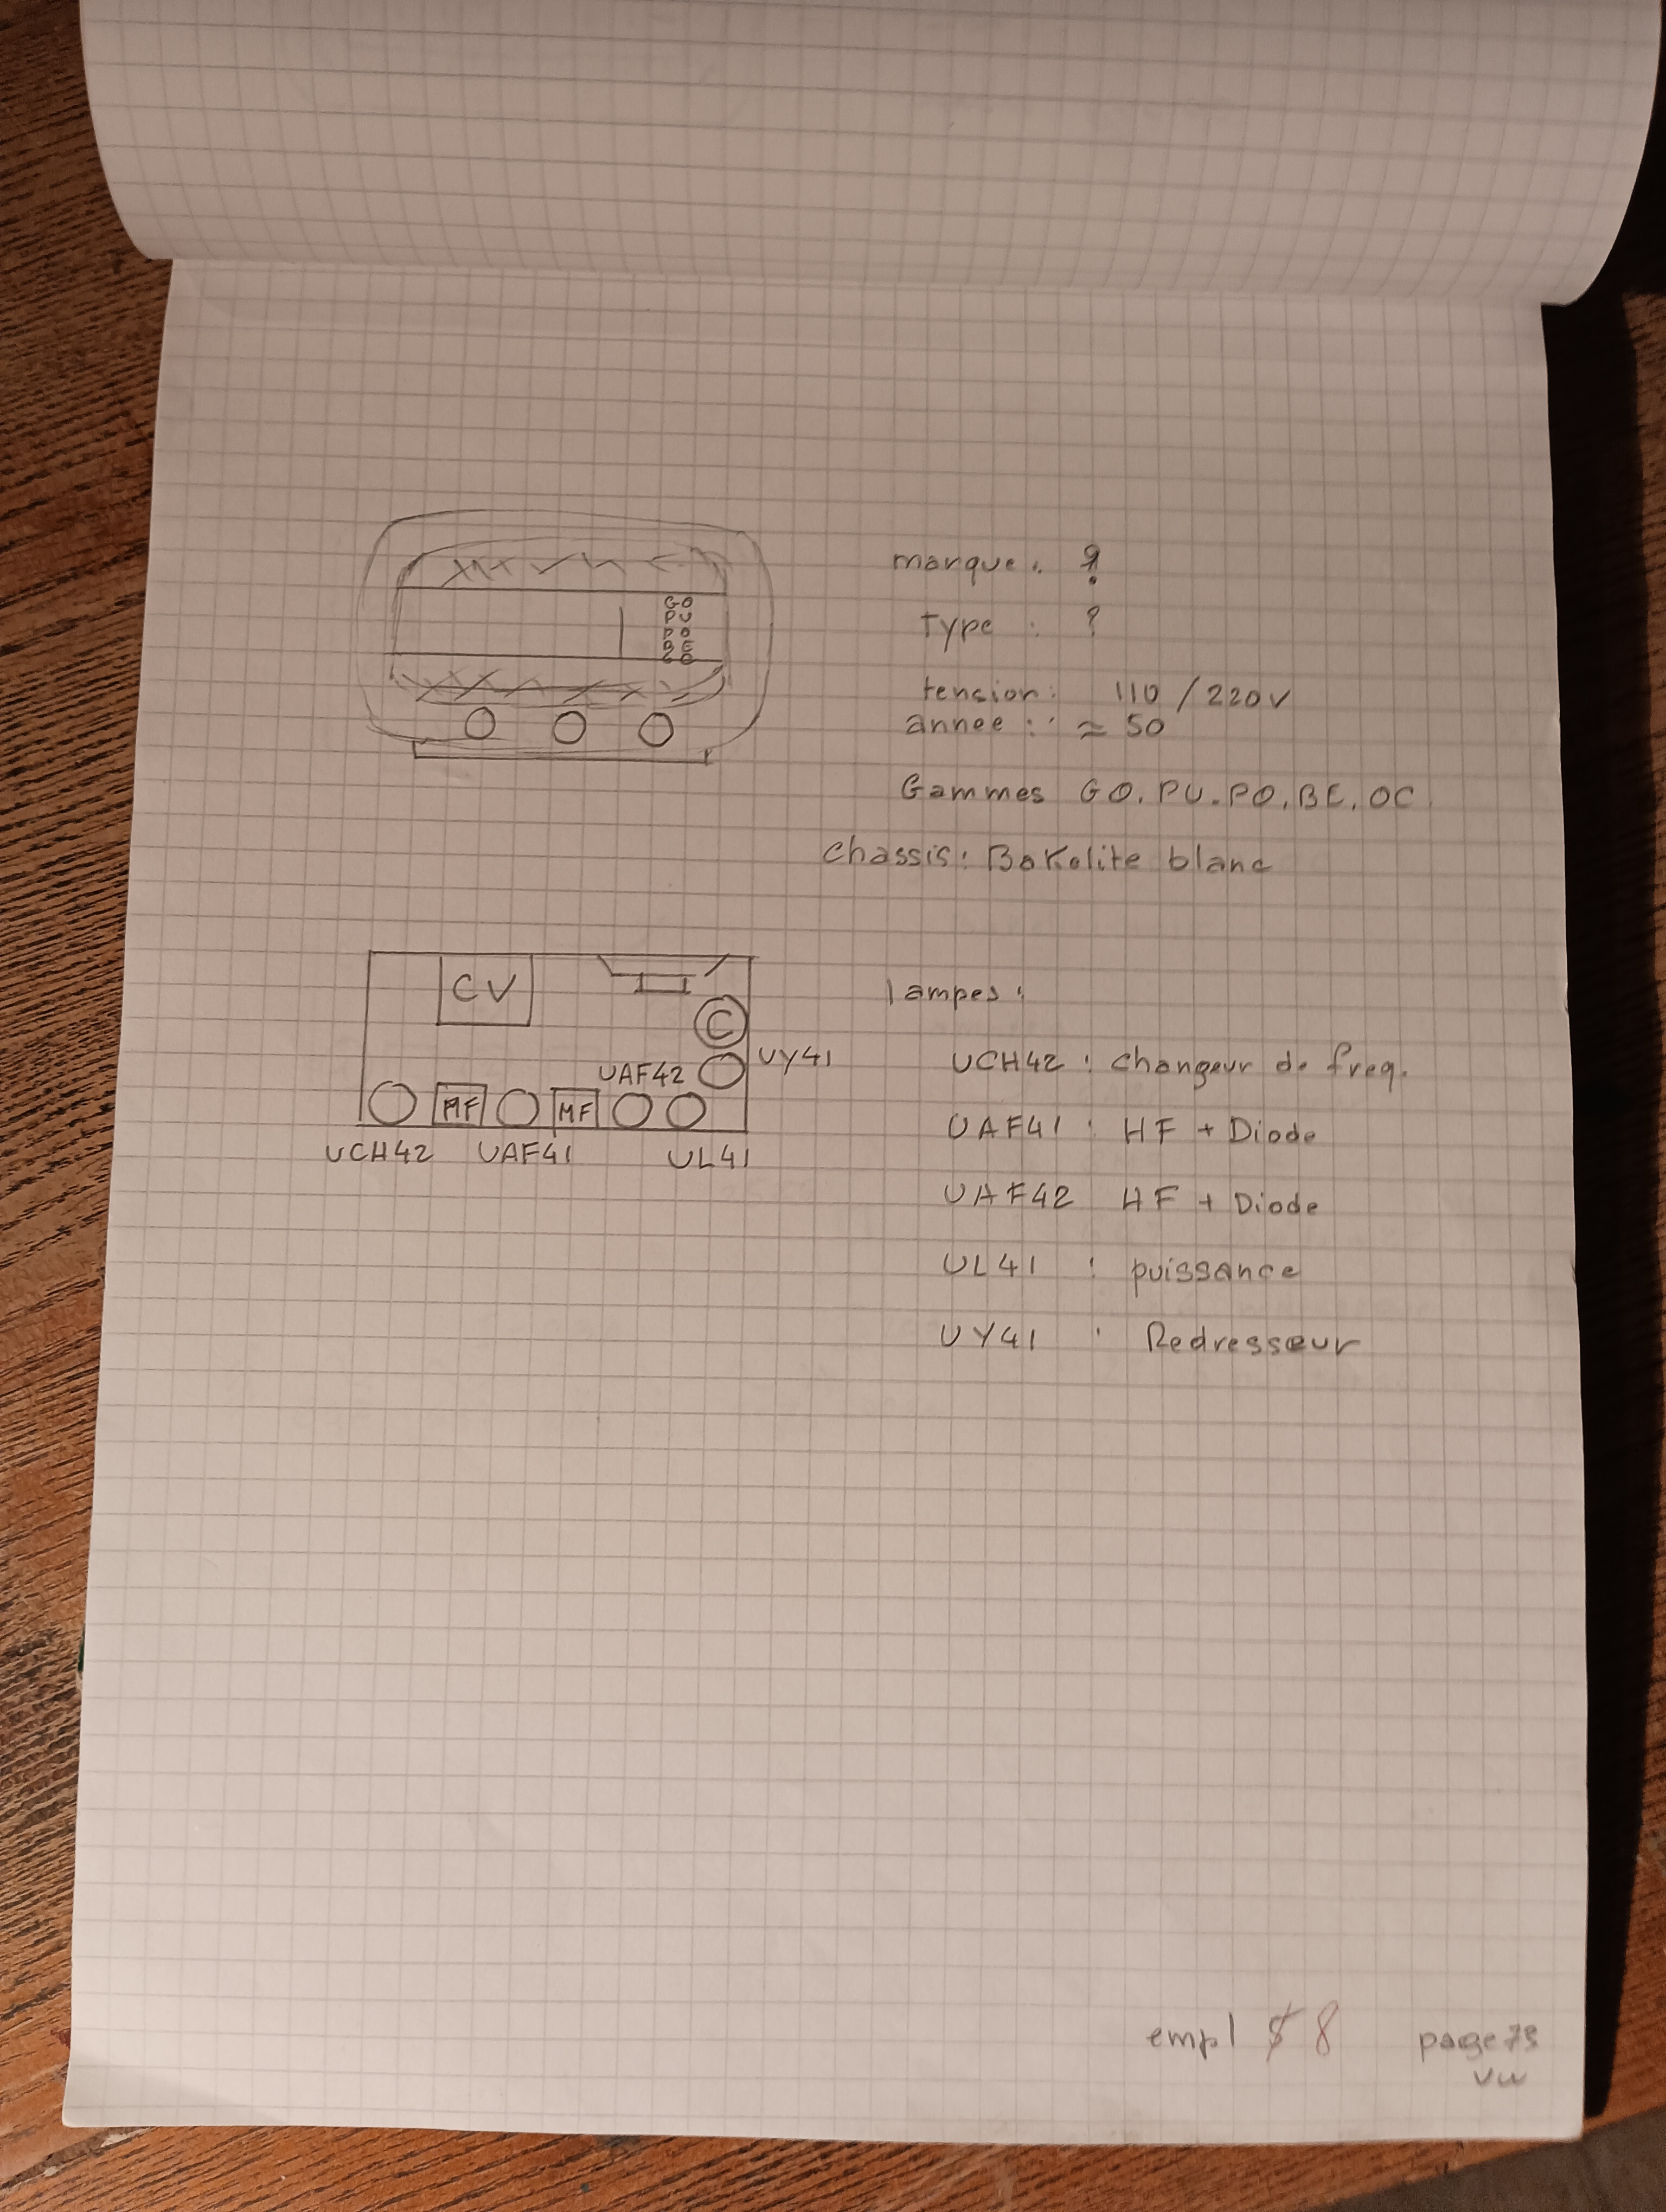 marque : ?
Type : ?
GO
PU
PO
BE
tension : 110 / 220 V
annee : ≈ 50
Gammes GO, PU. PO, BE, OC
chassis : Bakelite blanc
CV
C
lampes :
UAF42
UY41
MF
MF
UCH42 UAF41 UL41
UCH42 : changeur de freq.
UAF41 : HF + Diode
UAF42 HF + Diode
UL41 : puissance
UY41 : Redresseur
empl 8
page
vu